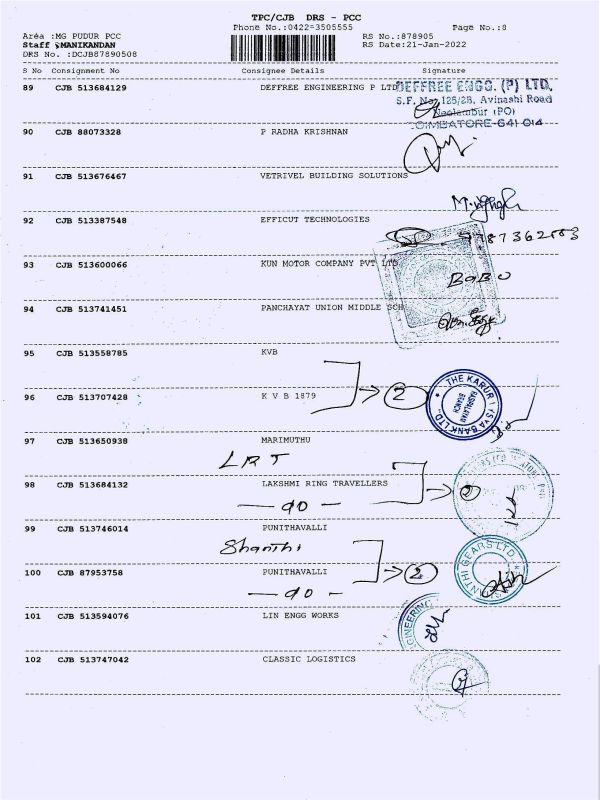 TPC/CJB DRS - PCC
Phone No.:0422-3505555 Page No.:8
Area :MG PUDUR PCC RS No.:878905
Staff :MANIKANDAN RS Date:21-Jan-2022
DRS No. :DCJB87890508
S No Consignment No Consignee Details Signature
89 CJB 513684129 DEFFREE ENGINEERING P LTD
DEFFREE ENGG. (P) LTD.
S.F. No. 125/2B, Avinashi Road
Neelambur (PO)
COIMBATORE-641 014
90 CJB 88073328 P RADHA KRISHNAN
91 CJB 513676467 VETRIVEL BUILDING SOLUTIONS
92 CJB 513387548 EFFICUT TECHNOLOGIES
93 CJB 513600066 KUN MOTOR COMPANY PVT LTD
BABU
94 CJB 513741451 PANCHAYAT UNION MIDDLE SCH
95 CJB 513558785 KVB
96 CJB 513707428 K V B 1879
2
THE KARUR VYSYA BANK LTD.
BRANCH
97 CJB 513650938 MARIMUTHU
LRT
98 CJB 513684132 LAKSHMI RING TRAVELLERS
2
— do —
99 CJB 513746014 PUNITHAVALLI
Shanthi
100 CJB 87953758 PUNITHAVALLI
2
SHANTHI GEARS LTD
— do —
101 CJB 513594076 LIN ENGG WORKS
102 CJB 513747042 CLASSIC LOGISTICS